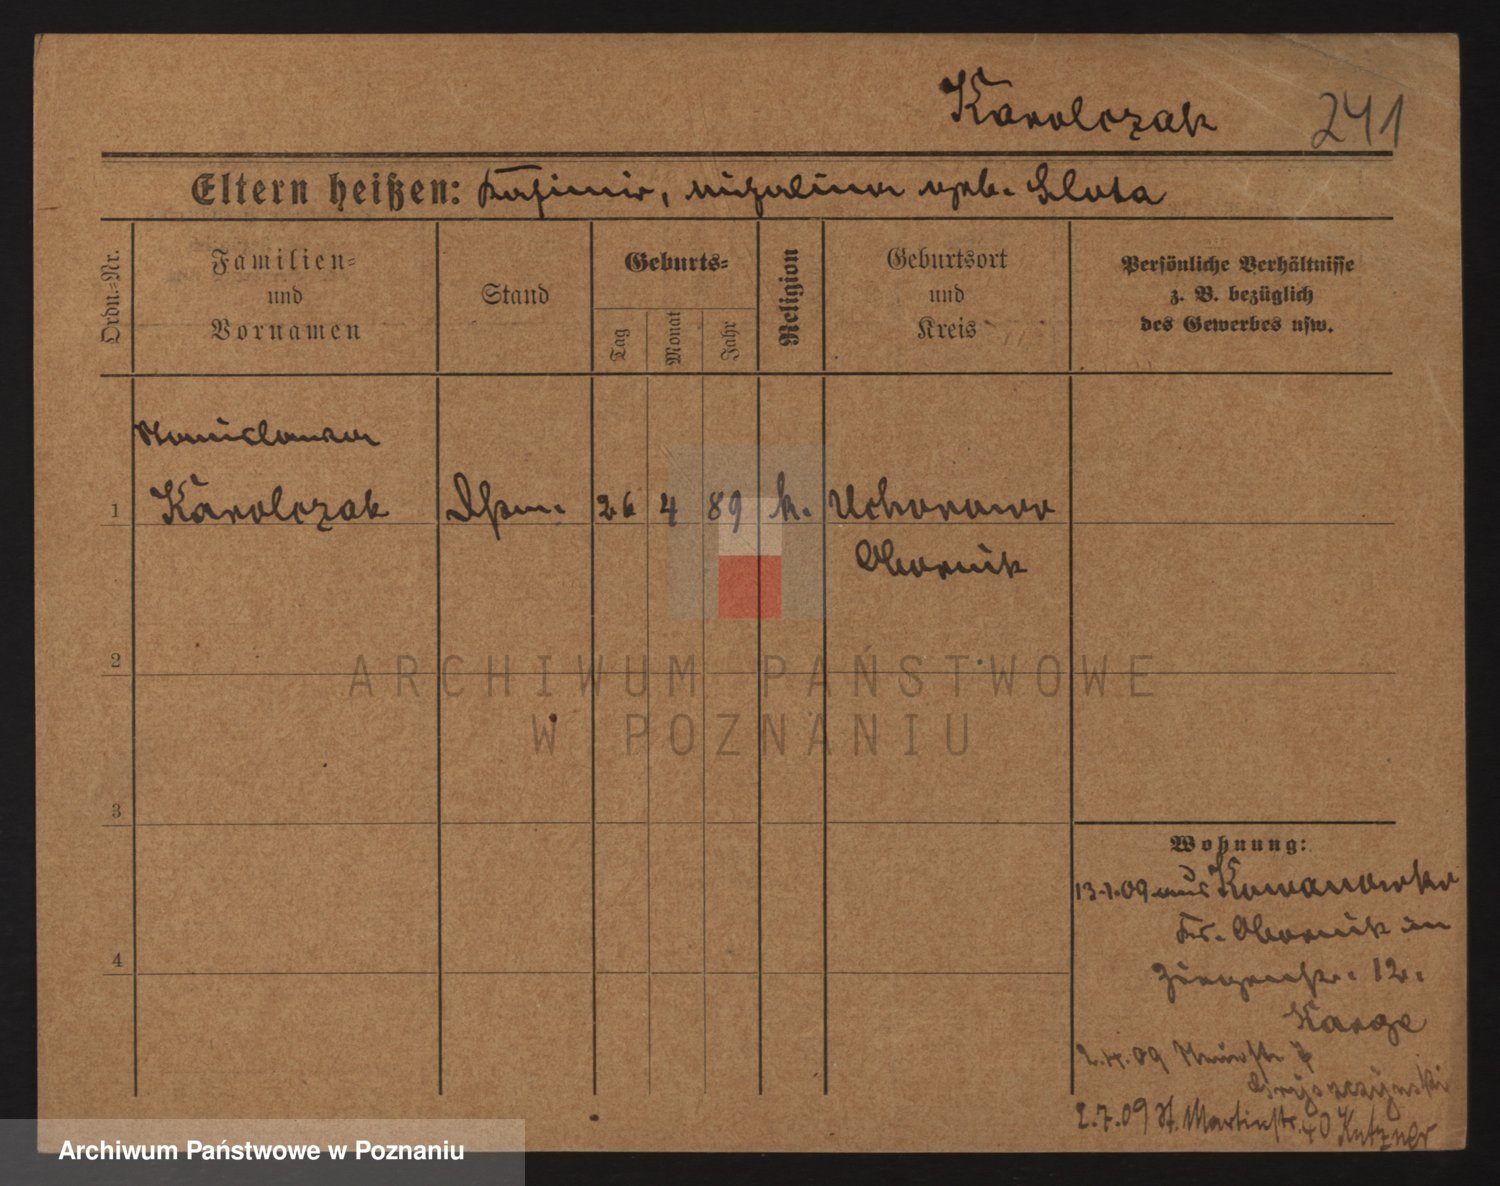 Karolczak 241
Eltern heißen: Kasimir, Michalina geb. Slota
Ordn.-Nr.
Familien- und Vornamen
Stand
Geburts-
Tag
Monat
Jahr
Religion
Geburtsort und Kreis
Persönliche Verhältnisse
z. B. bezüglich
des Gewerbes usw.
Stanislawa
1 Karolczak 26 4 89 k. Uchorowo
Obornik
2
ARCHIWUM PAŃSTWOWE
W POZNANIU
3
Wohnung:
13.1.09 aus Kowanowko
Kr. Obornik in
12.
Karge
09
2.7.09 St. Martinstr. 40 Kutzner
4
Archiwum Państwowe w Poznaniu